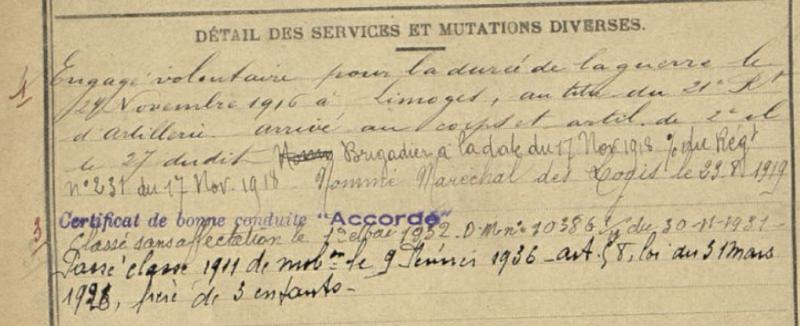 DÉTAIL DES SERVICES ET MUTATIONS DIVERSES.
Engagé volontaire pour la durée de la guerre le
24 Novembre 1916 à Limoges, au titre du 21e Rt
d'artillerie arrivé au corps et artil. de 2e cl
le 27 dudit Brigadier à la date du 17 Nov 1918 du Régt
n° 231 du 17 Nov. 1918. Nommé Maréchal des Logis le 23.8.1919
Certificat de bonne conduite "Accordé"
Classé sans affectation le 1er Mai 1932. D.M. n° 10386 du 30-11-1931-
Passé classe 1911 de mobon le 9 Février 1936 - art. 58, loi du 31 Mars
1928, père de 3 enfants-